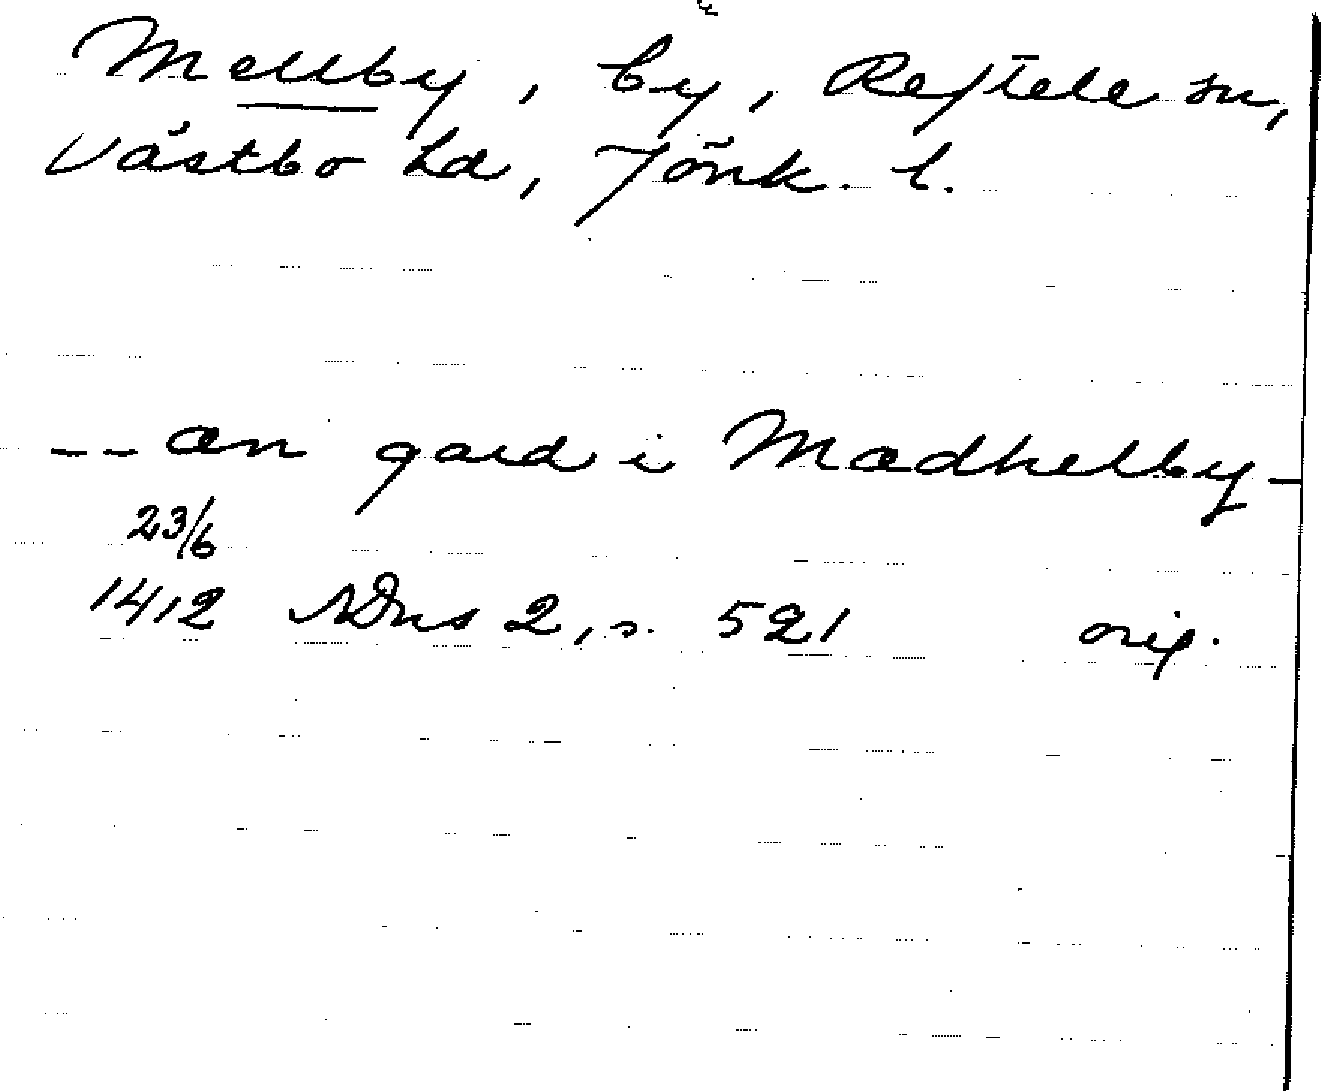 Mellby, by, Reftele sn,
Västbo hd, Jönk. l.
-- æn gard i Mædhelby -
23/6
1412 SDns 2, s. 521 orig.